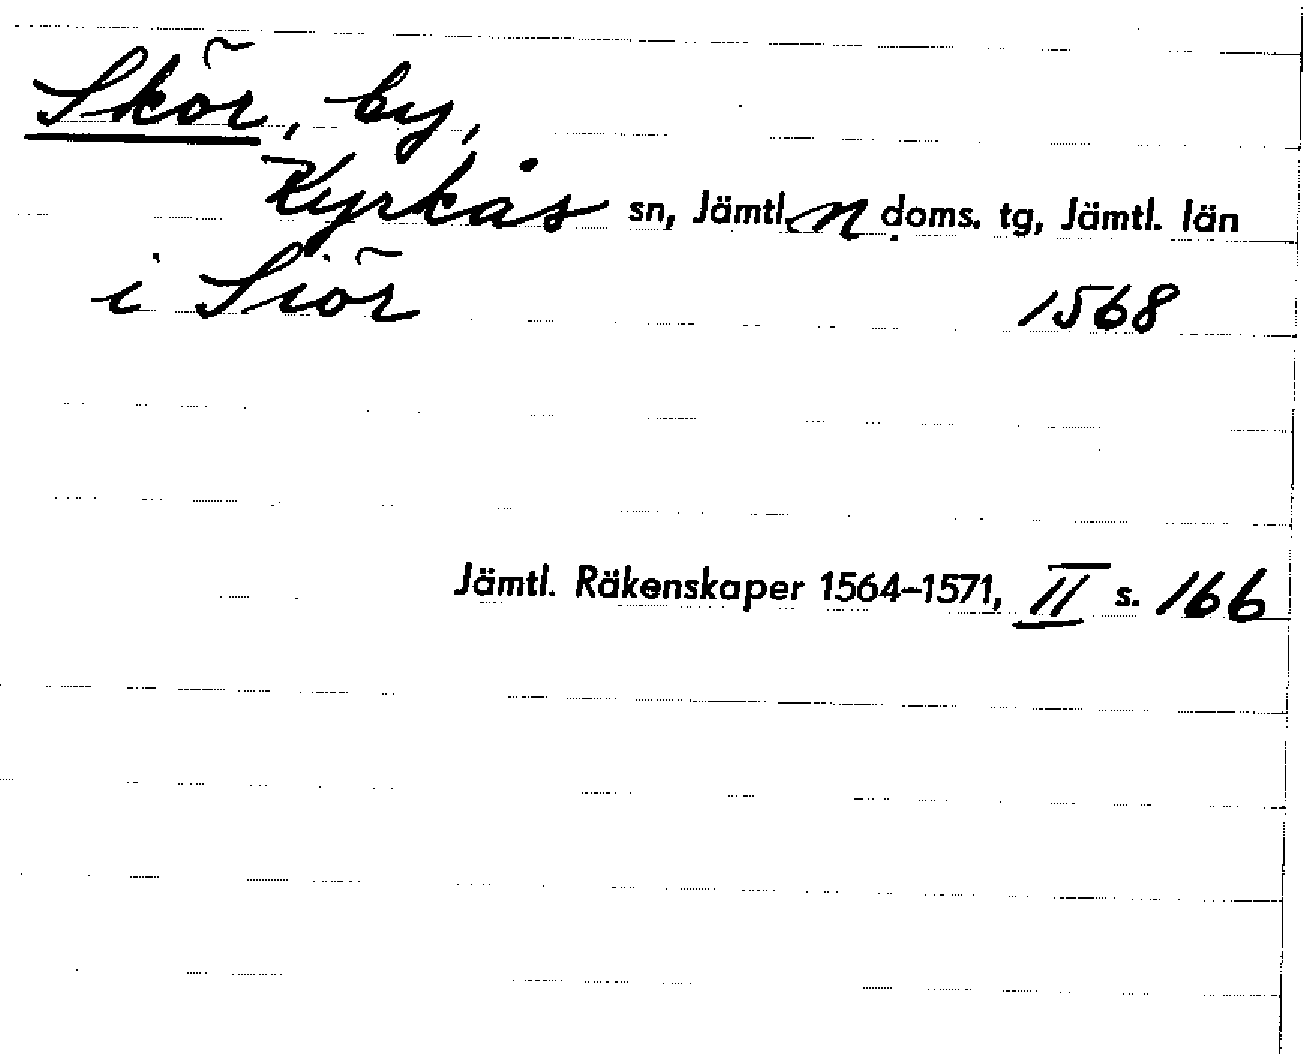 Skör, by,
Kyrkås sn, Jämtl. n doms. tg, Jämtl. län
i Siör 1568
Jämtl. Räkenskaper 1564–1571, II s. 166